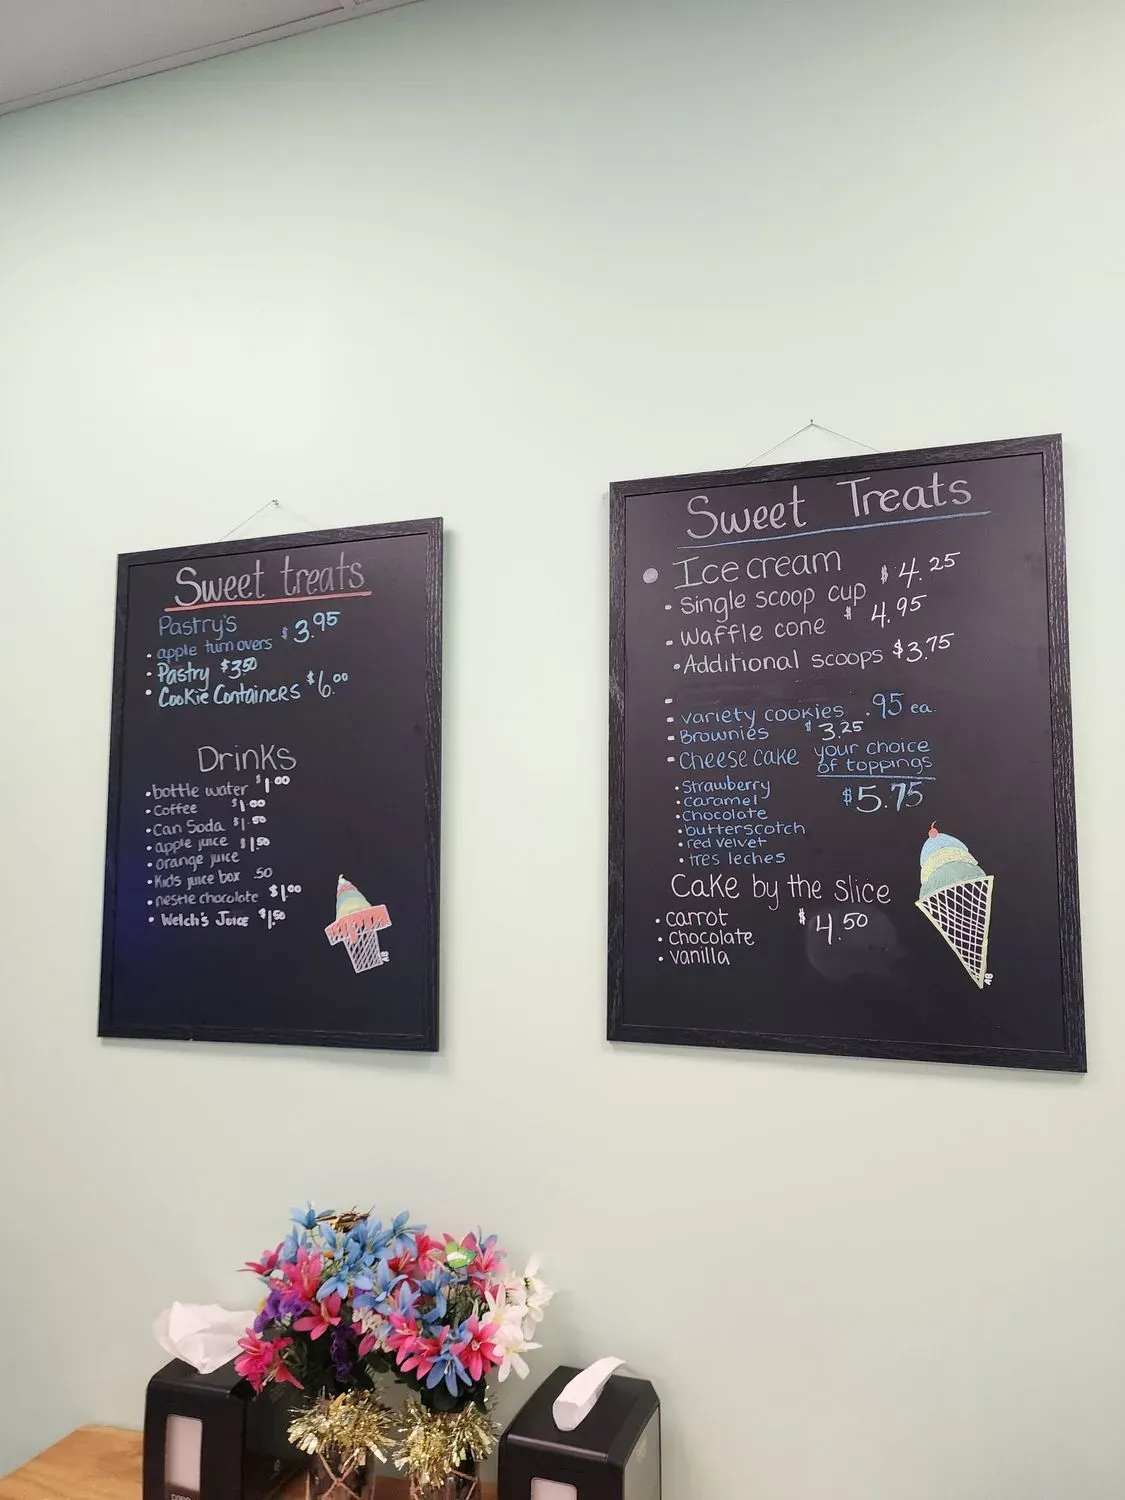 Sweet treats
Pastry's
• apple turn overs $3.95
• Pastry $3.50
• Cookie Containers $6.00
Drinks
• bottle water $1.00
• Coffee $1.00
• Can Soda $1.50
• apple juice $1.50
• orange juice
• Kids juice box .50
• nestle chocolate $1.00
• Welch's Juice $1.50
AB
Sweet Treats
• Ice cream
• Single scoop cup $4.25
• Waffle cone $4.95
• Additional scoops $3.75
• variety cookies .95 ea.
• Brownies $3.25
• Cheese cake your choice
of toppings
• Strawberry $5.75
• caramel
• chocolate
• butterscotch
• red velvet
• tres leches
Cake by the slice
• carrot $4.50
• chocolate
• vanilla
AB